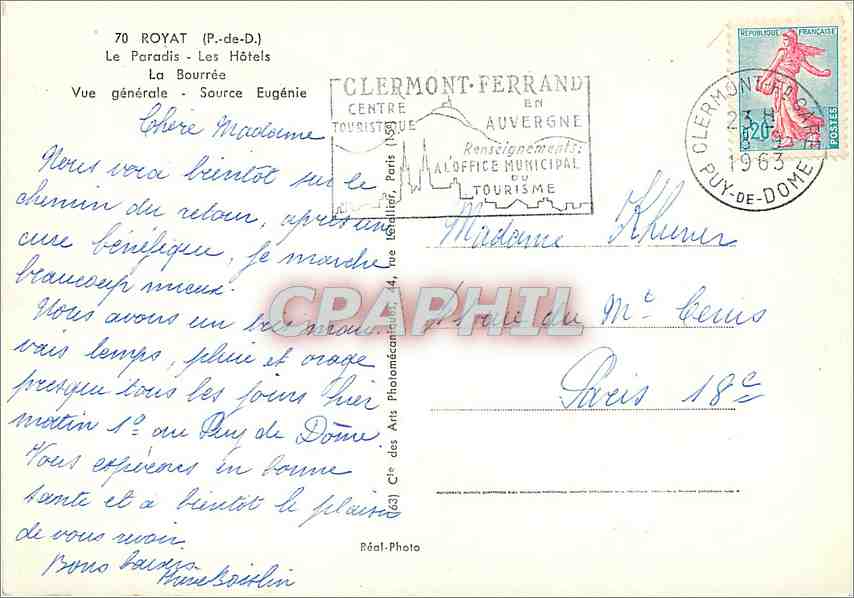 70 ROYAT (P.-de-D.)
Le Paradis - Les Hôtels
La Bourrée
Vue générale - Source Eugénie
Chère Madame
Nous voici bientôt sur le
chemin du retour, après une
cure bénéfique, je marche
beaucoup mieux.
Nous avons un très mau-
vais temps, pluie et orage
presque tous les jours hier
matin 1° au Puy de Dôme.
Vous espérons en bonne
santé et à bientôt le plaisir
de vous revoir
Bons baisers
CLERMONT-FERRAND
CENTRE
TOURISTIQUE
EN
AUVERGNE
Renseignements:
A L'OFFICE MUNICIPAL
DU
TOURISME
CLERMONT-FD GARE
23 H
1963
PUY-DE-DOME
REPUBLIQUE FRANÇAISE
0,20
POSTES
(63) Cie des Arts Photomécaniques, 44, rue Letellier, Paris (15e)
Madame
rue du Mt Cenis
Paris 18e
Réal-Photo
CPAPHIL